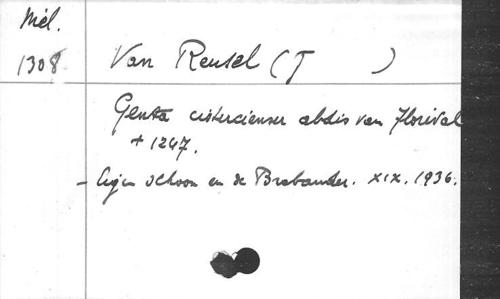 Mél.
1308
Van Reusel (J )
Genta cistercienser abdis van Florival
+ 1247.
- Eigen Schoon en de Brabander. XIX. 1936.